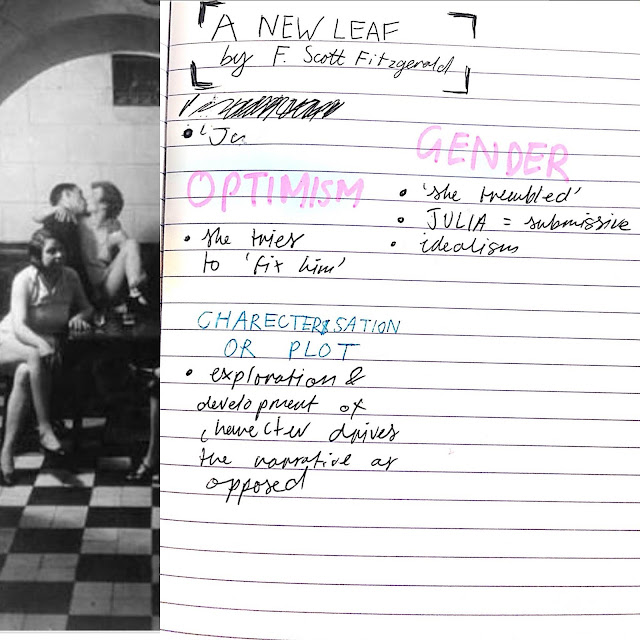 A NEW LEAF
by F. Scott Fitzgerald
• 'Ju
OPTIMISM
• she tries
to 'fix him'
GENDER
• 'she trembled'
• JULIA = submissive
• idealism
CHARECTERISATION
OR PLOT
• exploration &
development of
charecter drives
the narrative as
opposed